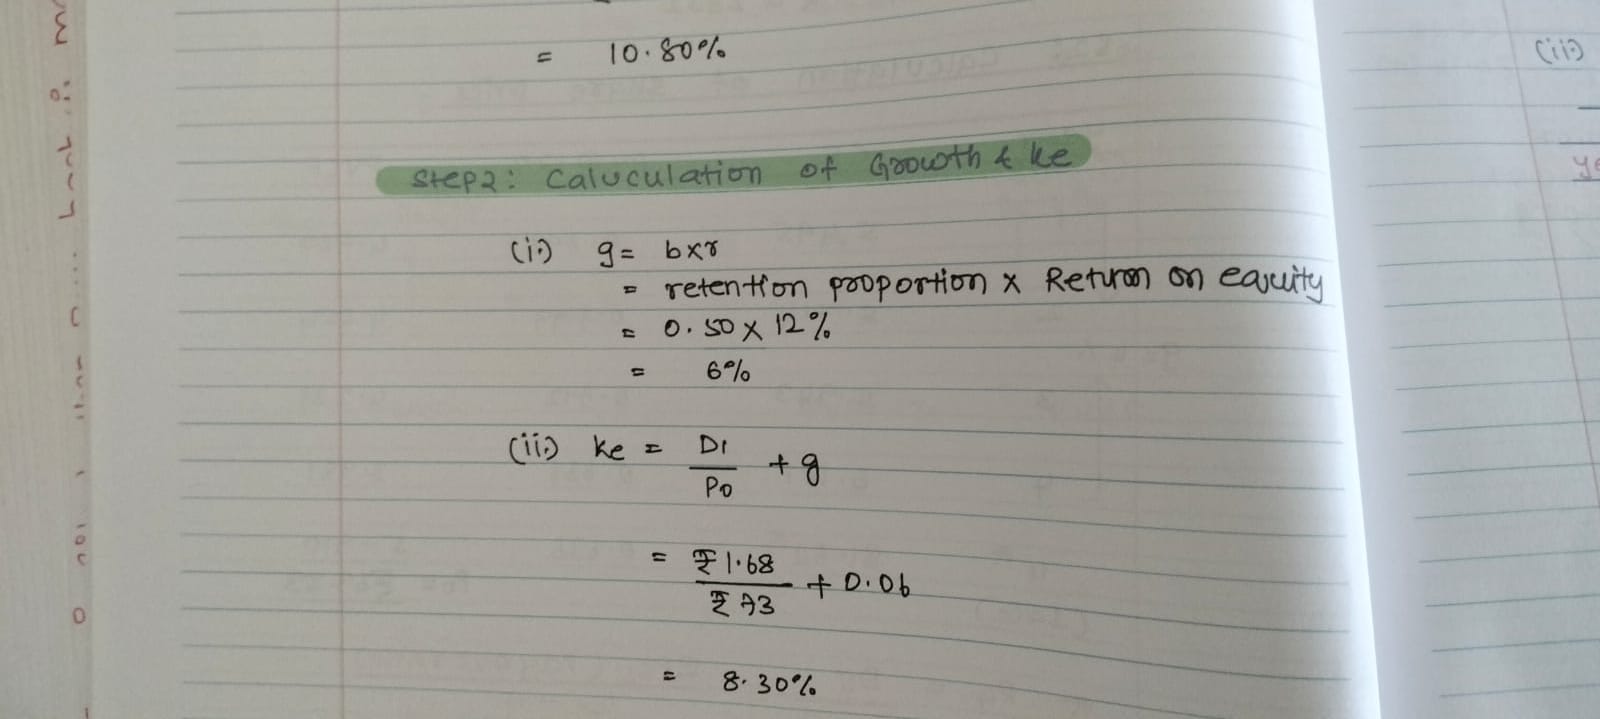 = 10.80%
Step2: Caluculation of Growth & ke
(i.) g = b×r
= retention proportion × Return on equity
= 0.50 × 12%
= 6%
(ii.) ke = D1 + g
P0
= ₹1.68 + 0.06
₹73
= 8.30%
(ii.)